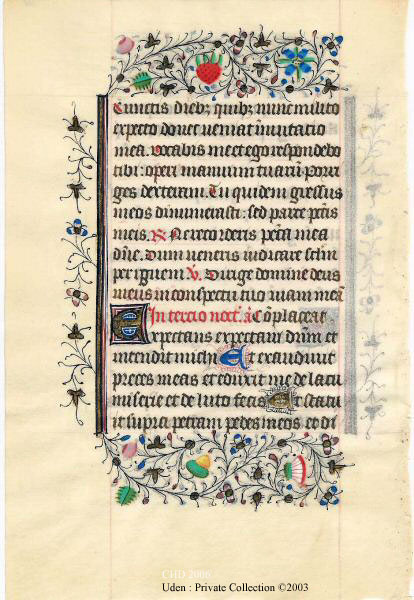 Cunctis dieb; quib; nunc milito
expecto donec veniat inmutatio
mea. vocabis me et ego respondebo
tibi: operi manuum tuarū porri
ges dexteram. Tu quidem gressus
meos dinumerasti: sed parce pctīs
meis. R. Ne recorderis pctā mea
dñe. Dum veneris iudicare sclm
per ignem. V. Dirige domine deus
meus in conspectu tuo viam meā
In tercio noct. a. Cōplaceat
Expectans expectaui dnm̄ et
intendit michi Et exaudiuit
preces meas et eduxit me de lacu
miserie et de luto fecis Et statu
it supra petram pedes meos et di
CHD 2006
Uden : Private Collection ©2003